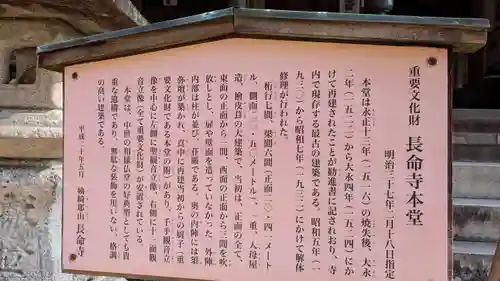 重要文化財 長命寺本堂
明治三十七年二月十八日指定
本堂は永正十三年（一五一六）の焼失後、大永
二年（一五二二）から大永四年（一五二四）にか
けて再建されたことが勧進書に記されおり、寺
内で現存する最古の建築である。昭和五年（一
九三〇）から昭和七年（一九三二）にかけて解体
修理が行われた。
桁行七間、梁間六間（正面二〇・四一メート
ル、側面二一・五二メートル）、一重、入母屋
造、檜皮葺の大建築で、当初は、正面の全て、
東面の正面から一間、西面の正面から三間を吹
放しとし、扉や壁面を造っていなかった。外陣
内部は柱が並び、荘厳である。奥の内陣には須
弥壇が築かれ、真中に再建当初からの厨子（重
要文化財である本堂の附）があり、千手観音立
像を中心に左側に聖観音立像、右側に十一面観
音立像（全て重要文化財）が安置されている。
本堂は、中世の和様仏堂の好典型として、貴
重な遺構であり、無駄な装飾を用いない、格調
の高い建築である。
平成二十年五月 姨綺耶山 長命寺